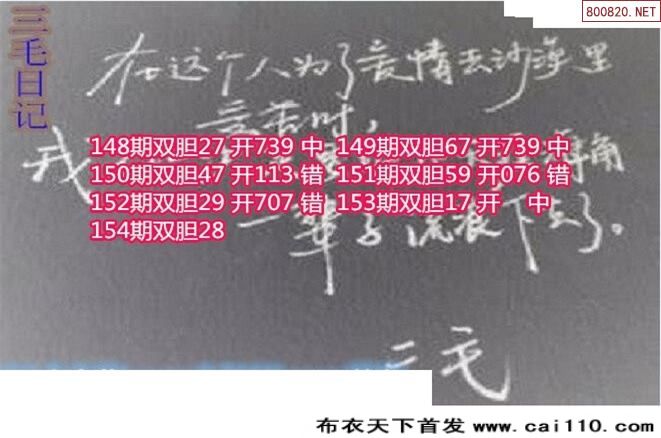 800820.NET
三毛日记
在这个人为了爱情去沙漠里
受苦时，
148期双胆27 开739 中 149期双胆67 开739 中
我
150期双胆47 开113 错 151期双胆59 开076 错
角
152期双胆29 开707 错 153期双胆17 开 中
154期双胆28
一辈子流浪下去了。
三毛
布衣天下首发 www.cai110.com